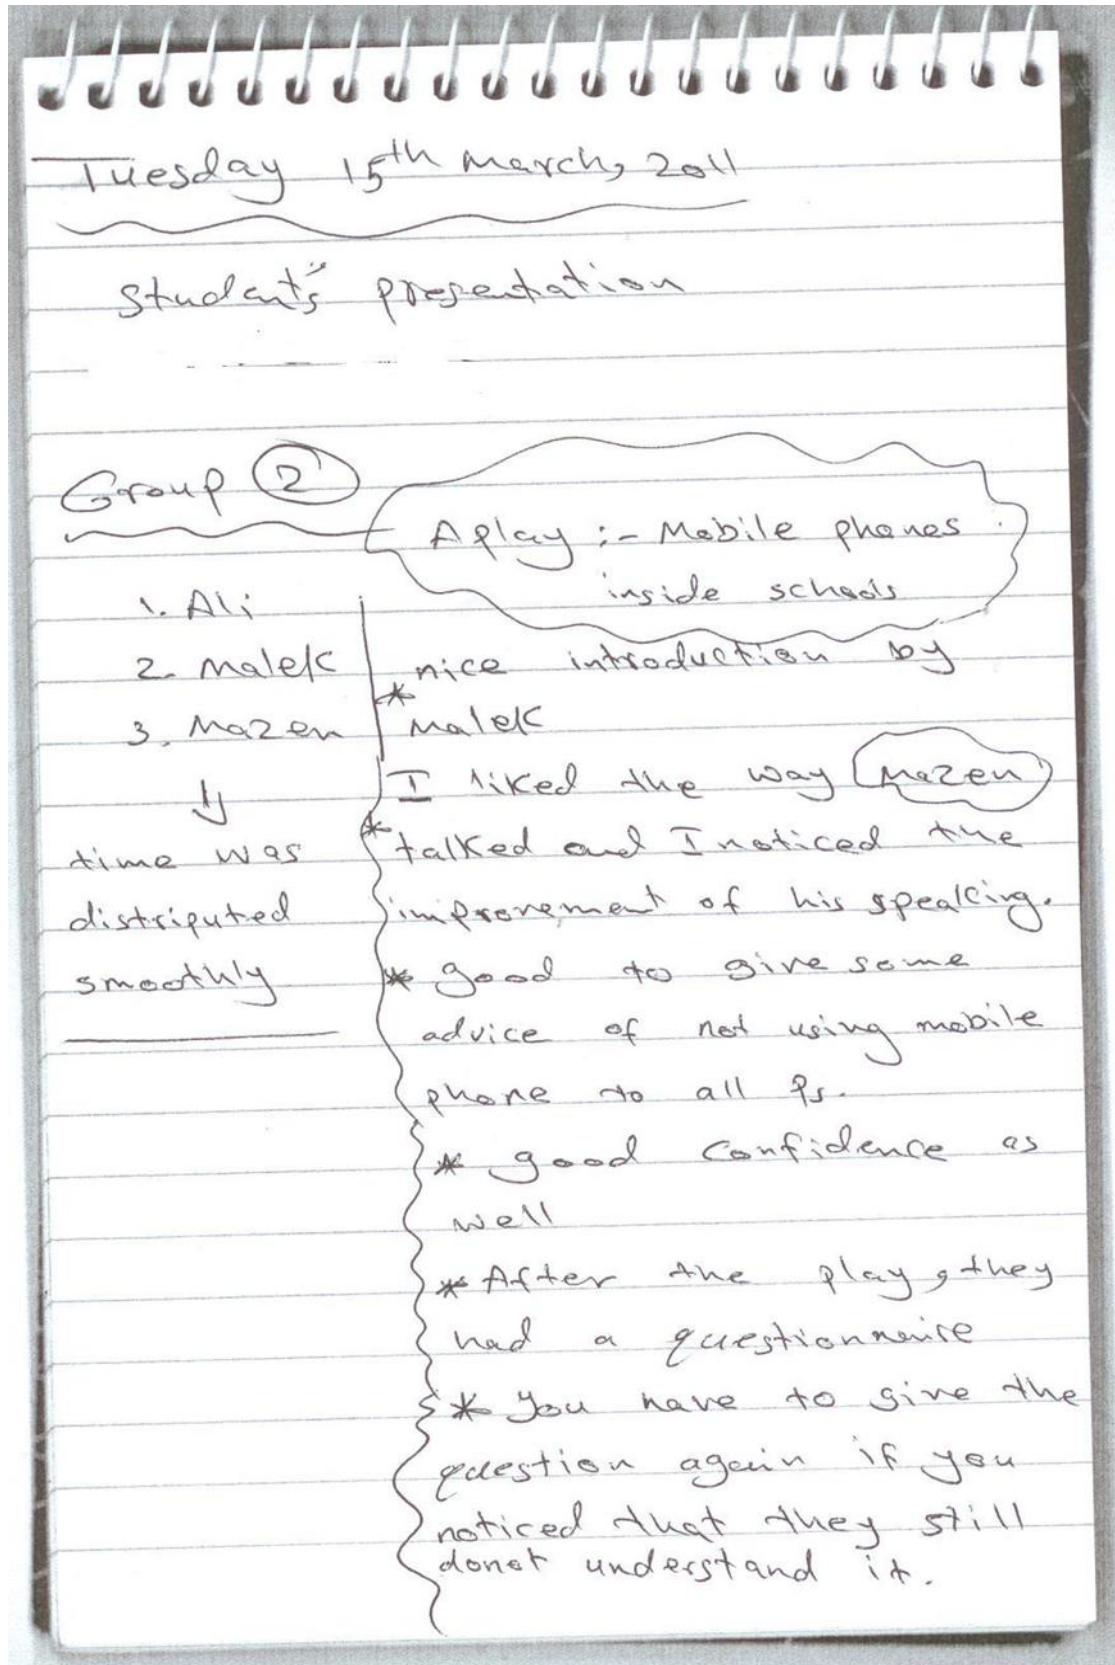 Tuesday 15th March, 2011
Student's presentation
Group 2
A play :- Mobile phones
inside schools
1. Ali
2. Malek
3. Mazen
time was
distriputed
smoothly
* nice introduction by
Malek
* I liked the way Mazen
talked and I noticed the
improvement of his speaking.
* good to give some
advice of not using mobile
phone to all Ps.
* good confidence as
well
* After the play, they
had a questionnaire
* You have to give the
question again if you
noticed that they still
donot understand it.